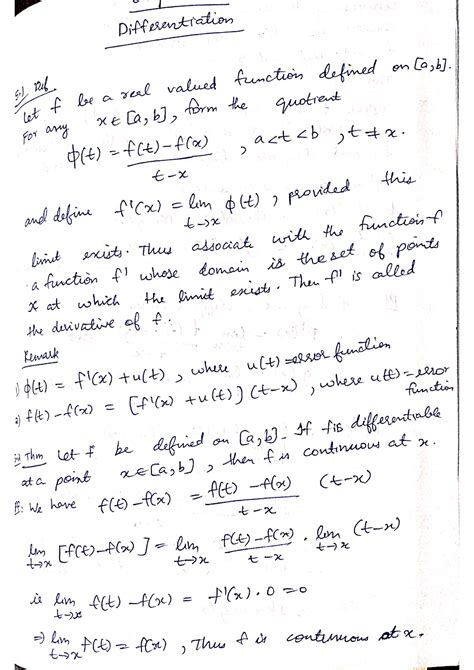 Differentiation
5.1 Def
Let f be a real valued function defined on [a,b].
For any x ∈ [a,b], form the quotient
ϕ(t) = f(t)-f(x) / t-x , a<t<b , t≠x.
and define f'(x) = lim t→x ϕ(t), provided this
limit exists. Thus associate with the function f
a function f' whose domain is the set of points
x at which the limit exists. Then f' is called
the derivative of f.
Remark
1) ϕ(t) = f'(x) + u(t), where u(t)=error function
2) f(t)-f(x) = [f'(x) + u(t)] (t-x), where u(t)=error
function
Thm Let f be defined on [a,b]. If f is differentiable
at a point x∈[a,b], then f is continuous at x.
: We have f(t)-f(x) = f(t)-f(x) / t-x (t-x)
lim t→x [f(t)-f(x)] = lim t→x f(t)-f(x) / t-x . lim t→x (t-x)
ie lim t→x f(t)-f(x) = f'(x).0 =0
⇒ lim t→x f(t) = f(x), Thus f is continuous at x.